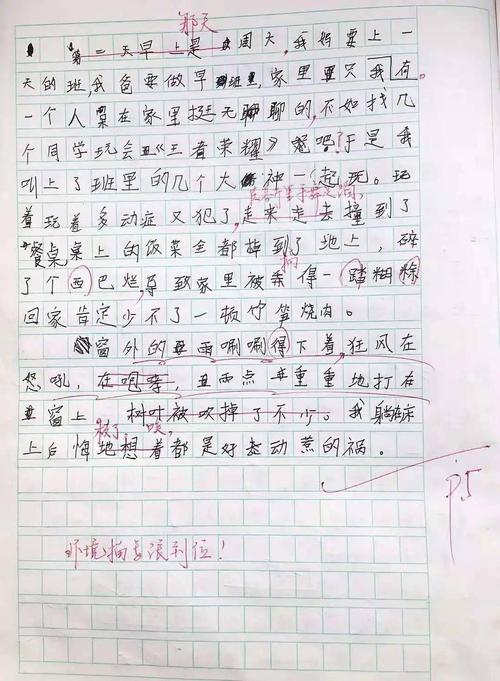 那天
第二天早上是周六,我妈要上一
天的班,我爸要做早班,家里只我有
一个人呆在家里挺无聊的,不如找几
个同学玩会《王者荣耀》吧,于是我
叫上了班里的几个大神一起玩。玩
着玩着多动症又犯了,走来走去撞到了
餐桌桌上的饭菜全都掉到了地上,碎
了个西巴烂,导致家里被弄得一踏糊
回家肯定少不了一顿竹笋烧肉。
窗外的丑雨唰唰得下着,狂风在
怒吼,在咆哮,丑雨点重重地打在
窗上 树叶被吹掉了不少。我躺在床
上后悔地想着都是好惹的祸。
环境描写很到位!